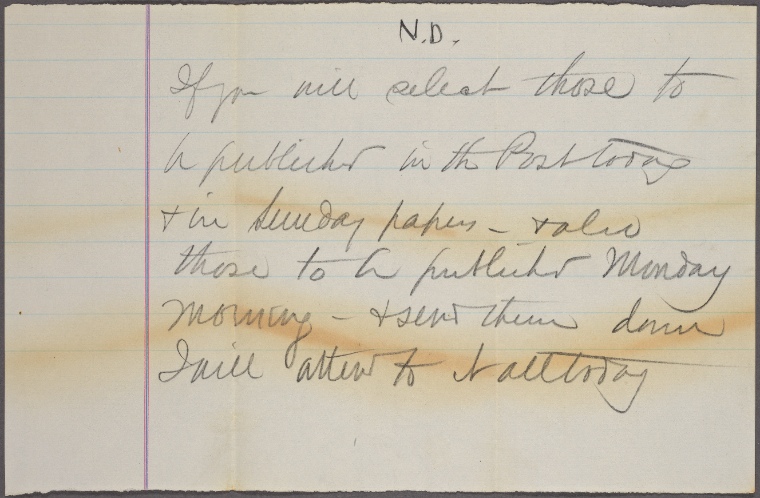 N.D.
If you will select those to
be published in the Post today
& in Sunday papers - & also
those to be published Monday
morning - & send them down
I will attend to it all today